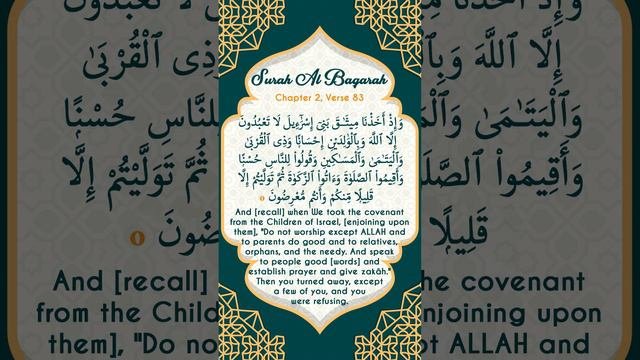 Surah Al Baqarah
Chapter 2, Verse 83
وَإِذْ أَخَذْنَا مِيثَٰقَ بَنِىٓ إِسْرَٰٓءِيلَ لَا تَعْبُدُونَ
إِلَّا ٱللَّهَ وَبِٱلْوَٰلِدَيْنِ إِحْسَانًا وَذِى ٱلْقُرْبَىٰ
وَٱلْيَتَٰمَىٰ وَٱلْمَسَٰكِينِ وَقُولُوا۟ لِلنَّاسِ حُسْنًا
وَأَقِيمُوا۟ ٱلصَّلَوٰةَ وَءَاتُوا۟ ٱلزَّكَوٰةَ ثُمَّ تَوَلَّيْتُمْ إِلَّا
قَلِيلًا مِّنكُمْ وَأَنتُم مُّعْرِضُونَ
And [recall] when We took the covenant
from the Children of Israel, [enjoining upon
them], "Do not worship except ALLAH and
to parents do good and to relatives,
orphans, and the needy. And speak
to people good [words] and
establish prayer and give zakāh."
Then you turned away, except
a few of you, and you
were refusing.